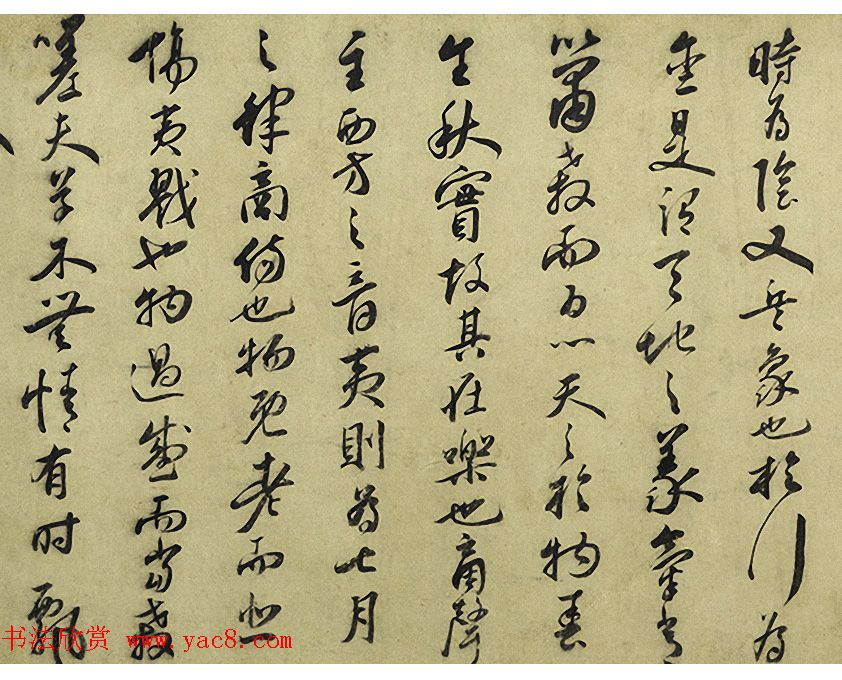 時為陰又兵象也於行為
金是謂天地之義氣常
以肅殺而為心天之於物春
生秋實故其在樂也商聲
主西方之音夷則為七月
之律商傷也物既老而悲
傷夷戮也物過盛而當殺
嗟夫草木無情有时飄
书法欣赏 www.yac8.com